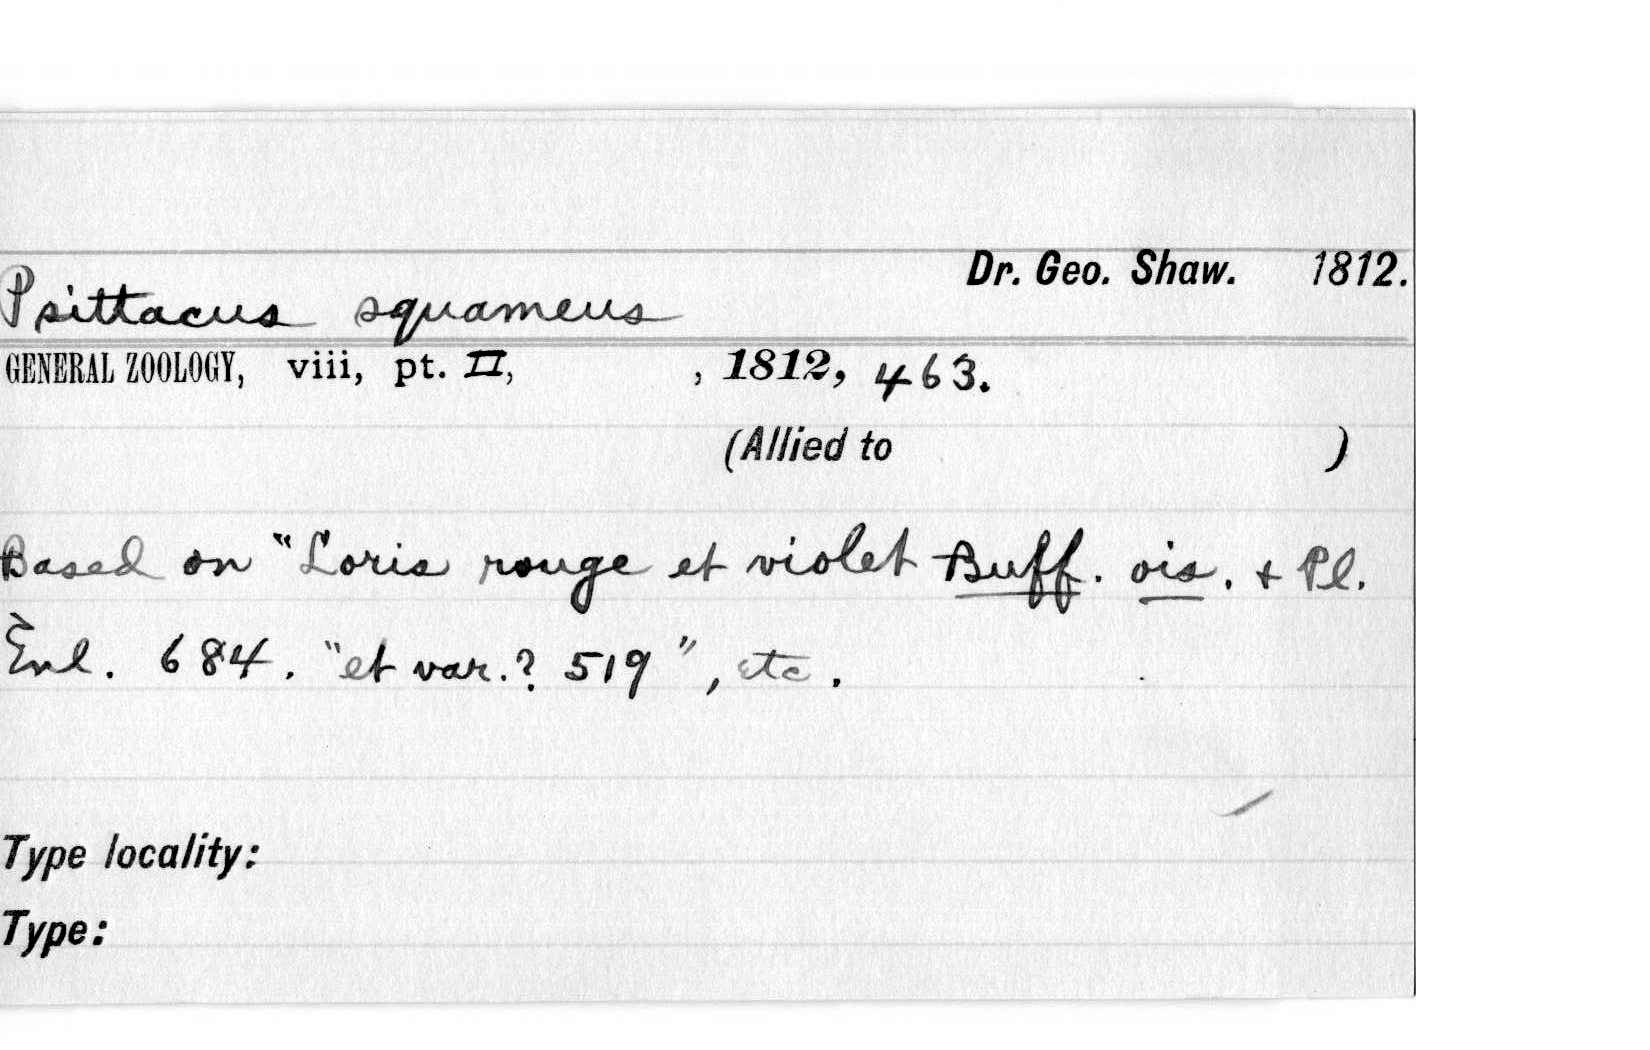 Dr. Geo. Shaw. 1812.
Psittacus squameus
GENERAL ZOOLOGY, viii, pt. II, , 1812, 463.
(Allied to )
Based on "Loris rouge et violet Buff. ois. + Pl.
Enl. 684. "et var.? 519", etc.
Type locality:
Type: